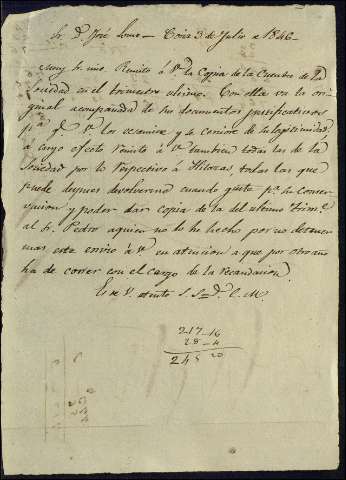 Sr. D. José Lomo — Coin 3 de Julio de 1846
Muy Sr. mio: Remito á V. la Copia de la Cuenta de la
Sociedad en el trimestre ultimo. Con ella va la ori-
ginal acompañada de sus documentos justificativos
pa. q. V. los examine y se cerciore de su legitimidad
á cuyo efecto remito á V. tambien todas las de la
Sociedad por lo respectivo á Hileras, todas las que
puede despues devolverme cuando guste pa. su conser-
vacion y poder dar copia de la del ultimo Trime.
al Sr. Pedro aquien no lo he hecho por no detener
mas este envio á V. en atencion a que por otro año
ha de correr con el cargo de la recaudacion.
Es de V. atento S. S. Q. B. S. M.
217-16
28-4
245 20